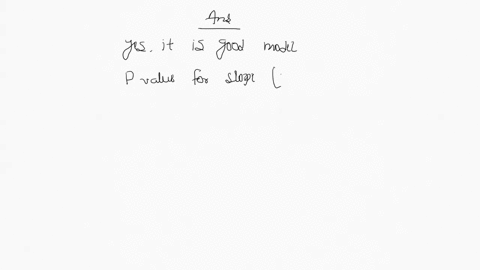 Ans
yes. it is good model
P value for slope (